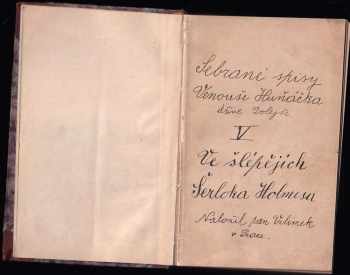 Sebrané spisy
Venouše Huňáčka
dříve Dolejše
V
Ve šlépějích
Šerloka Holmesa
Nalomil pan Vilímek
v Praze.